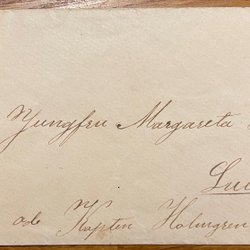 Jungfru Margareta
adr Kapten Holmgren